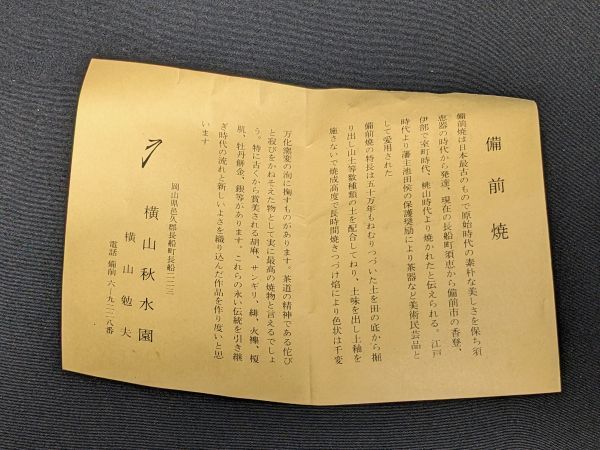 備前焼
備前焼は日本最古のもので原始時代の素朴な美しさを保ち須
恵器の時代から発達、現在の長船町須恵から備前市の香登、
伊部で室町時代、桃山時代より焼かれたと伝えられる。江戸
時代より藩主池田侯の保護奨励により茶器など美術民芸品と
して愛用された
備前焼の特長は五十万年もねむりつづいた土を田の底から掘
り出し山土等数種類の土を配合してねり、土味を出し上釉を
施さないで焼成高度で長時間焼きつづけ焰により色状は千変
万化窯変の洵に掬すものがあります。茶道の精神である侘び
と寂びをかねそえた物として実に最高の焼物と言えるでしょ
う。特に古くから賞美される胡麻、サンギリ、緋、火襷、榎
肌、牡丹餅金、銀等があります。これらの永い伝統を引き継
ぎ時代の流れと新しいよさを織り込んだ作品を作り度いと思
います
岡山県邑久郡長船町長船一二二三
横山秋水園
横山勉夫
電話備前六―九二二六番